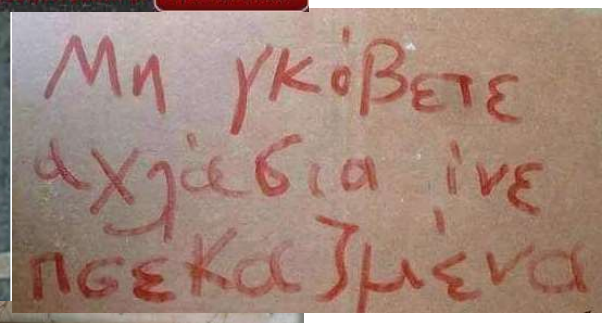 Μη γκόβετε
αχλάδια ίνε
πσεκαζμένα